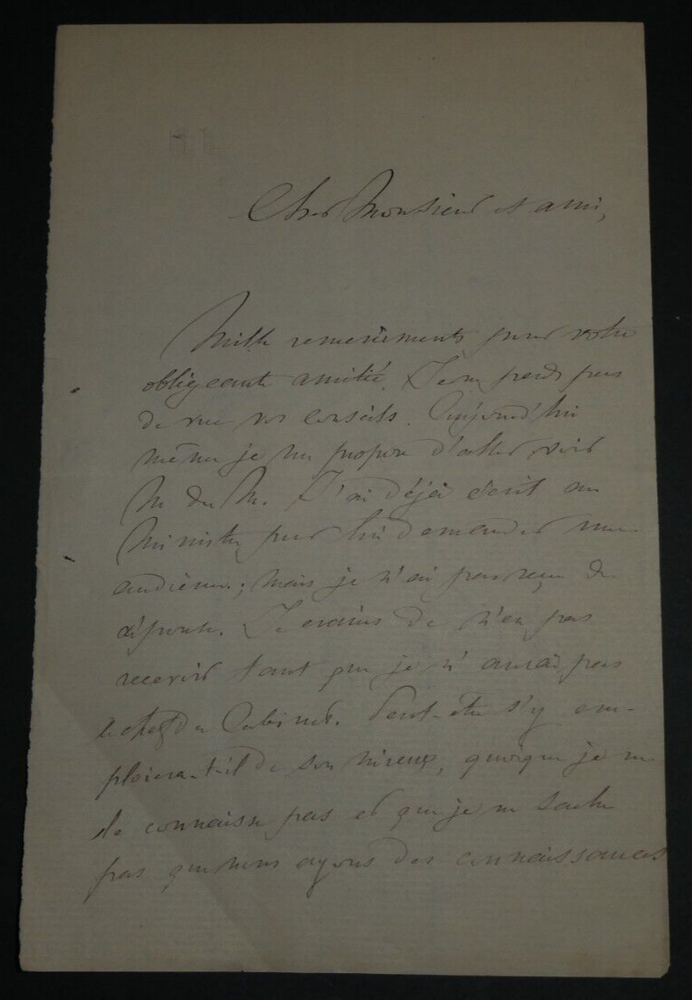 Cher Monsieur et ami,
Mille remerciements pour votre
obligeante amitié. Je ne perds pas
de vue vos conseils. Aujourd'hui
même je me propose d'aller voir
M. du M. J'ai déjà écrit au
Ministre pour lui demander une
audience; mais je n'ai pas reçu de
réponse. Je crains de n'en pas
recevoir tant que je n'aurai pas
le chef du Cabinet. Peut-être s'y em-
ploiera-t-il de son mieux, quoique je ne
le connaisse pas et que je ne sache
pas que nous ayons des connaissances